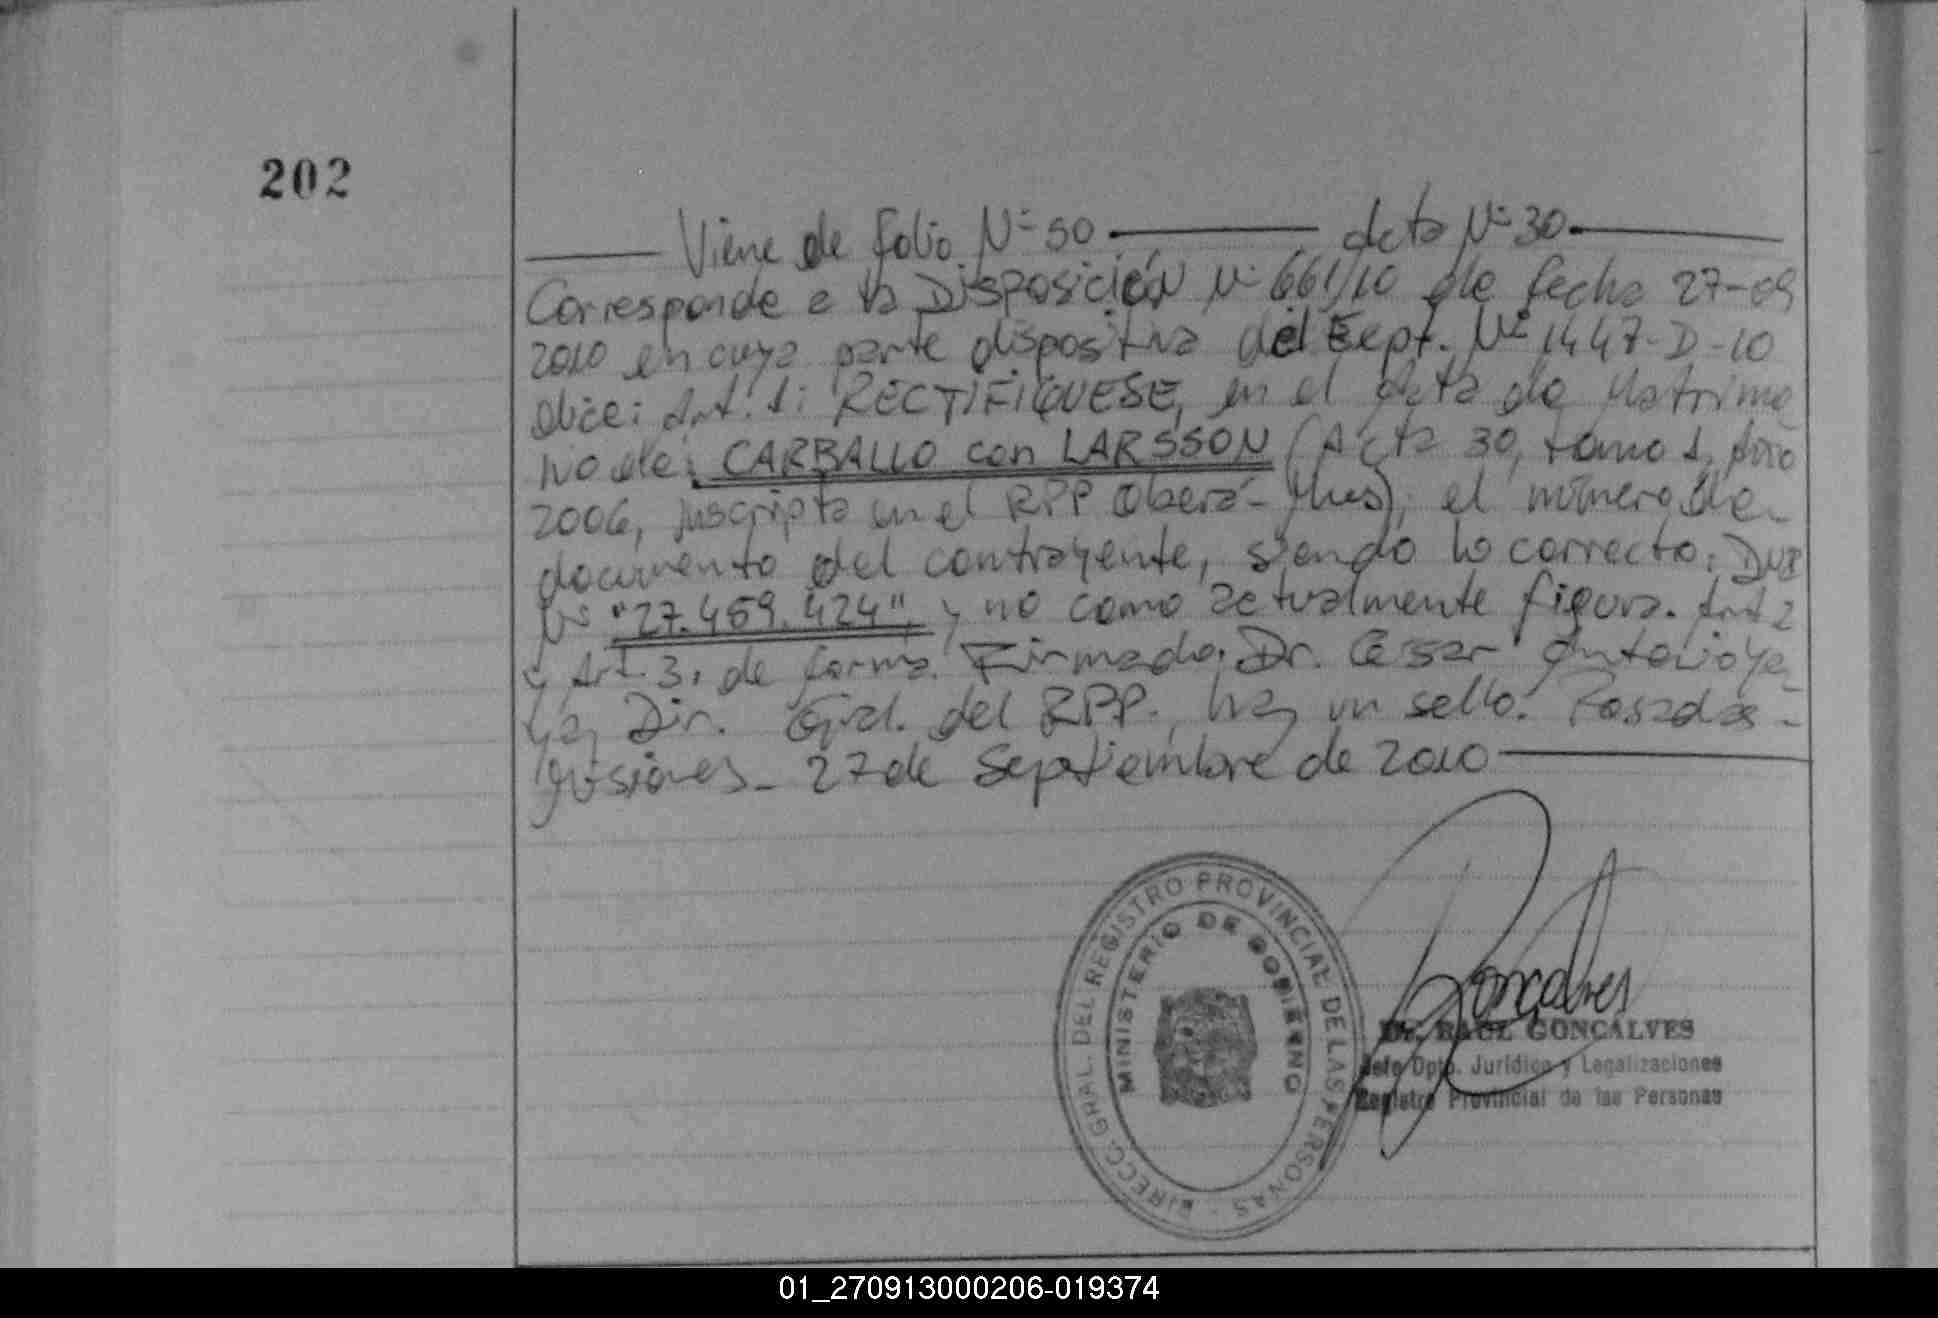 202
Viene de folio Nº 50. Acta Nº 30.
Corresponde a la Disposición Nº 661/10 de fecha 27-09
2010 en cuya parte dispositiva del Expt. Nº 1447-D-10
dice: Art. 1: RECTIFIQUESE, en el Acta de Matrimo
nio de: CARBALLO con LARSSON (Acta 30, tomo 1, Año
2006, Inscripta en el RPP Oberá - Mnes), el número de
documento del contrayente, siendo lo correcto: DNI
Nº "27.459.424", y no como actualmente figura. Art 2
y Art. 3. de forma. Firmado. Dr. Cesar Antonio
Dir. Gral. del RPP. hay un sello. Posadas -
Misiones - 27 de Septiembre de 2010
DIRECC. GRAL. DEL REGISTRO PROVINCIAL DE LAS PERSONAS -
MINISTERIO DE GOBIERNO
Goncalves
Dr. RAUL GONCALVES
Jefe Dpto. Jurídico y Legalizaciones
Registro Provincial de las Personas
01_270913000206-019374